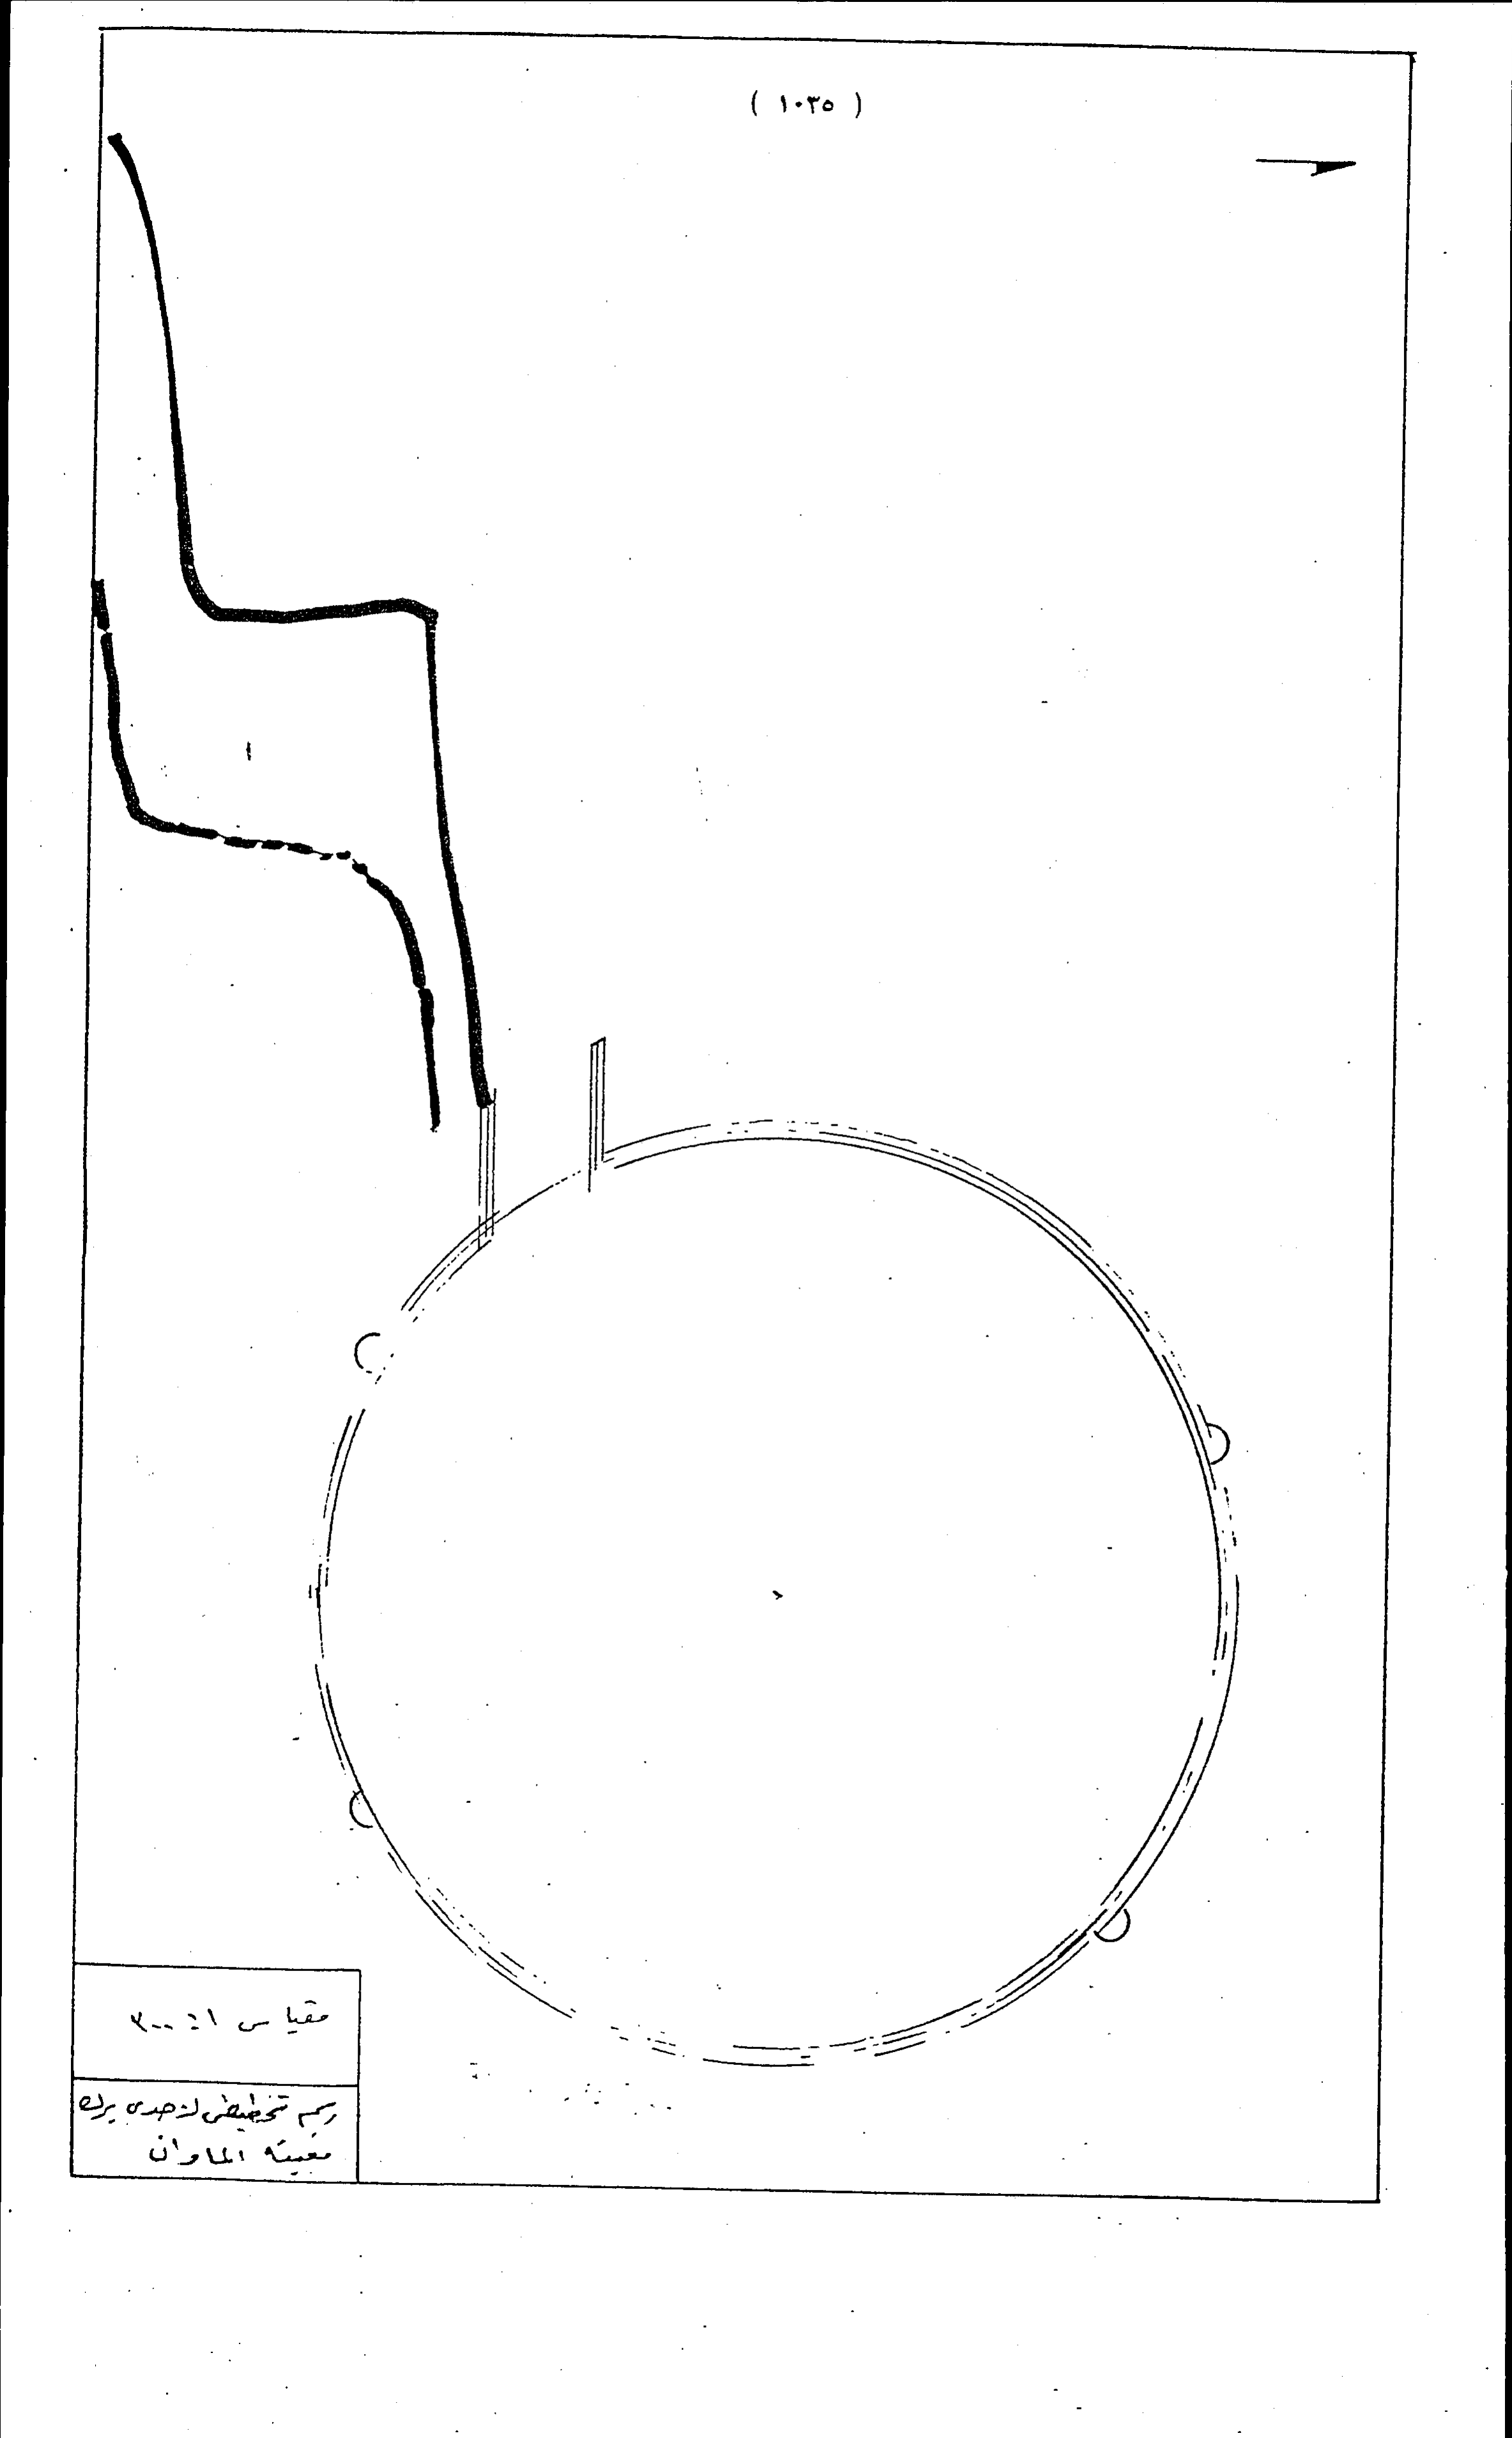 ( ١٠٣٥ )
مقياس ١ : ٣٠٠
رسم تخطيطى لاحدى برك
مغيثه الماوان